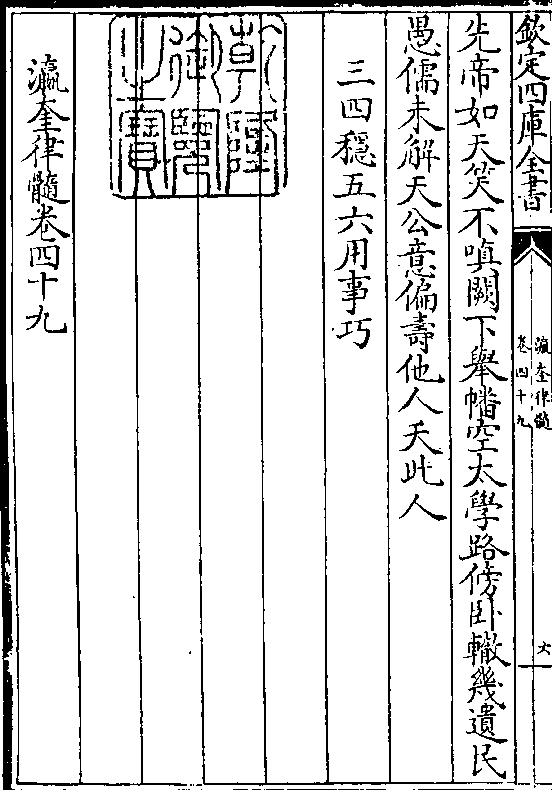 欽定四庫全書
瀛奎律髓
卷四十九
六
先帝如天笑不嗔闕下舉幡空太學路傍卧轍幾遺民
愚儒未解天公意偏壽他人夭此人
三四穩五六用事巧
乾隆
御覽
之寶
瀛奎律髓卷四十九